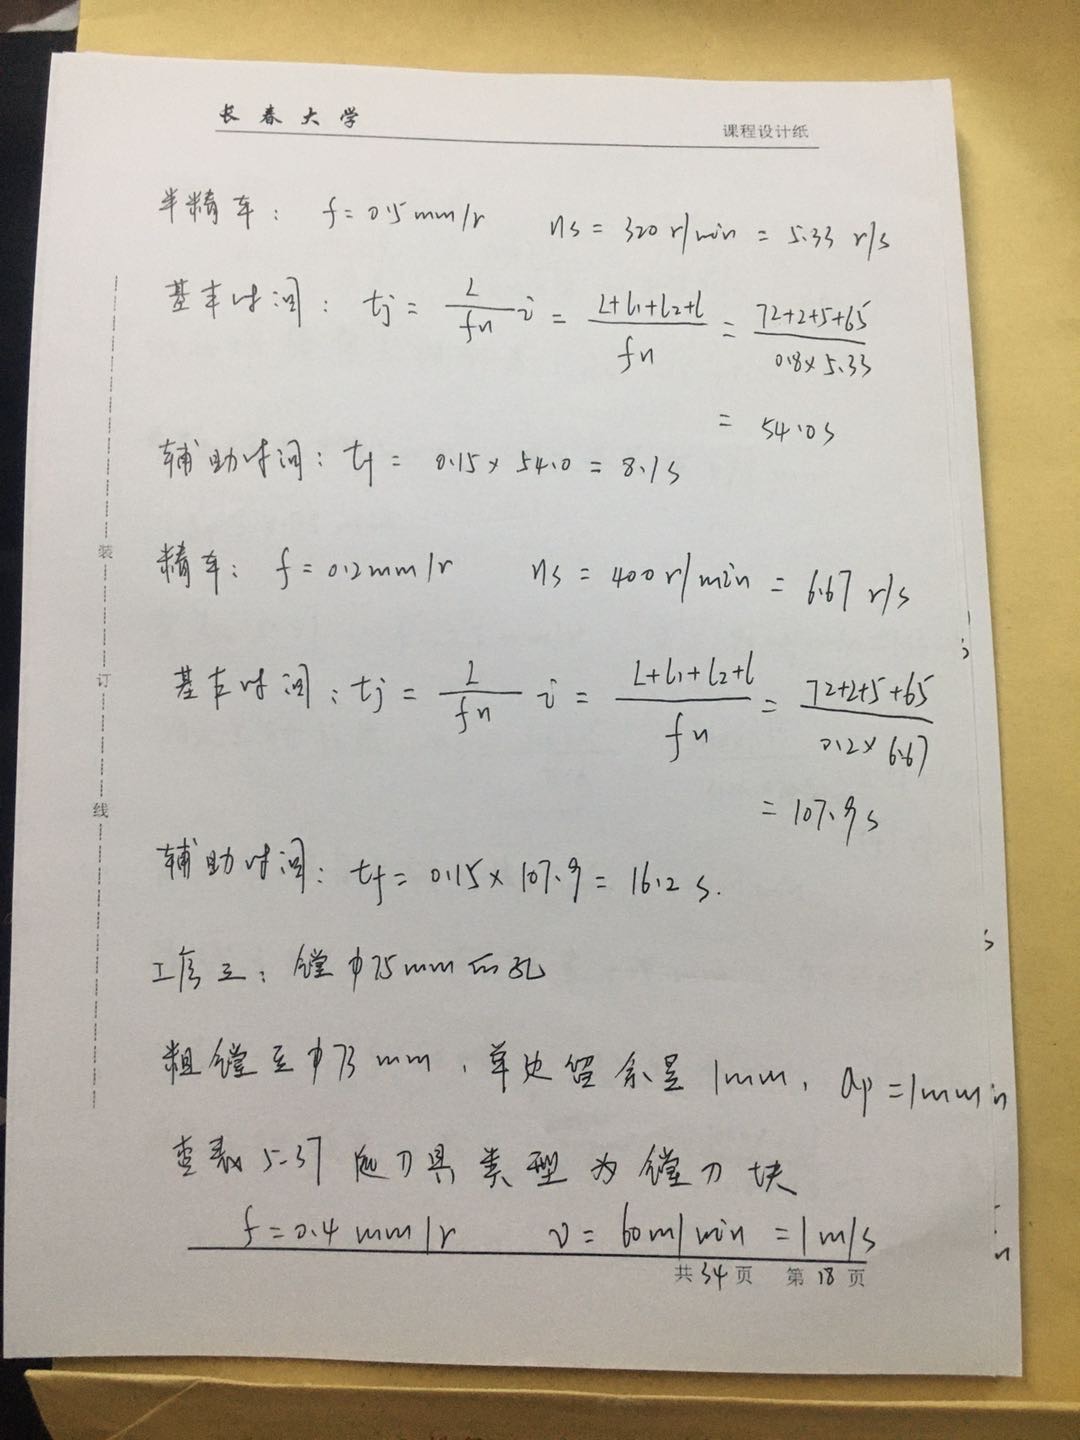 长春大学
课程设计纸
半精车: f=0.5mm/r ns=320r/min=5.33 r/s
基本时间: tj=L/fn i=L+l1+l2+l/fn=72+2+5+65/0.8×5.33
=54.0s
辅助时间: tf=0.15×54.0=8.1s
精车: f=0.2mm/r ns=400r/min=6.67 r/s
基本时间: tj=L/fn i=L+l1+l2+l/fn=72+2+5+65/0.2×6.67
=107.9s
辅助时间: tf=0.15×107.9=16.2s.
工序三: 镗φ75mm的孔
粗镗至φ73mm, 单边留余量1mm, ap=1mm
查表5-37 选刀具类型为镗刀块
f=0.4mm/r v=60m/min=1m/s
共34页 第18页
装
订
线